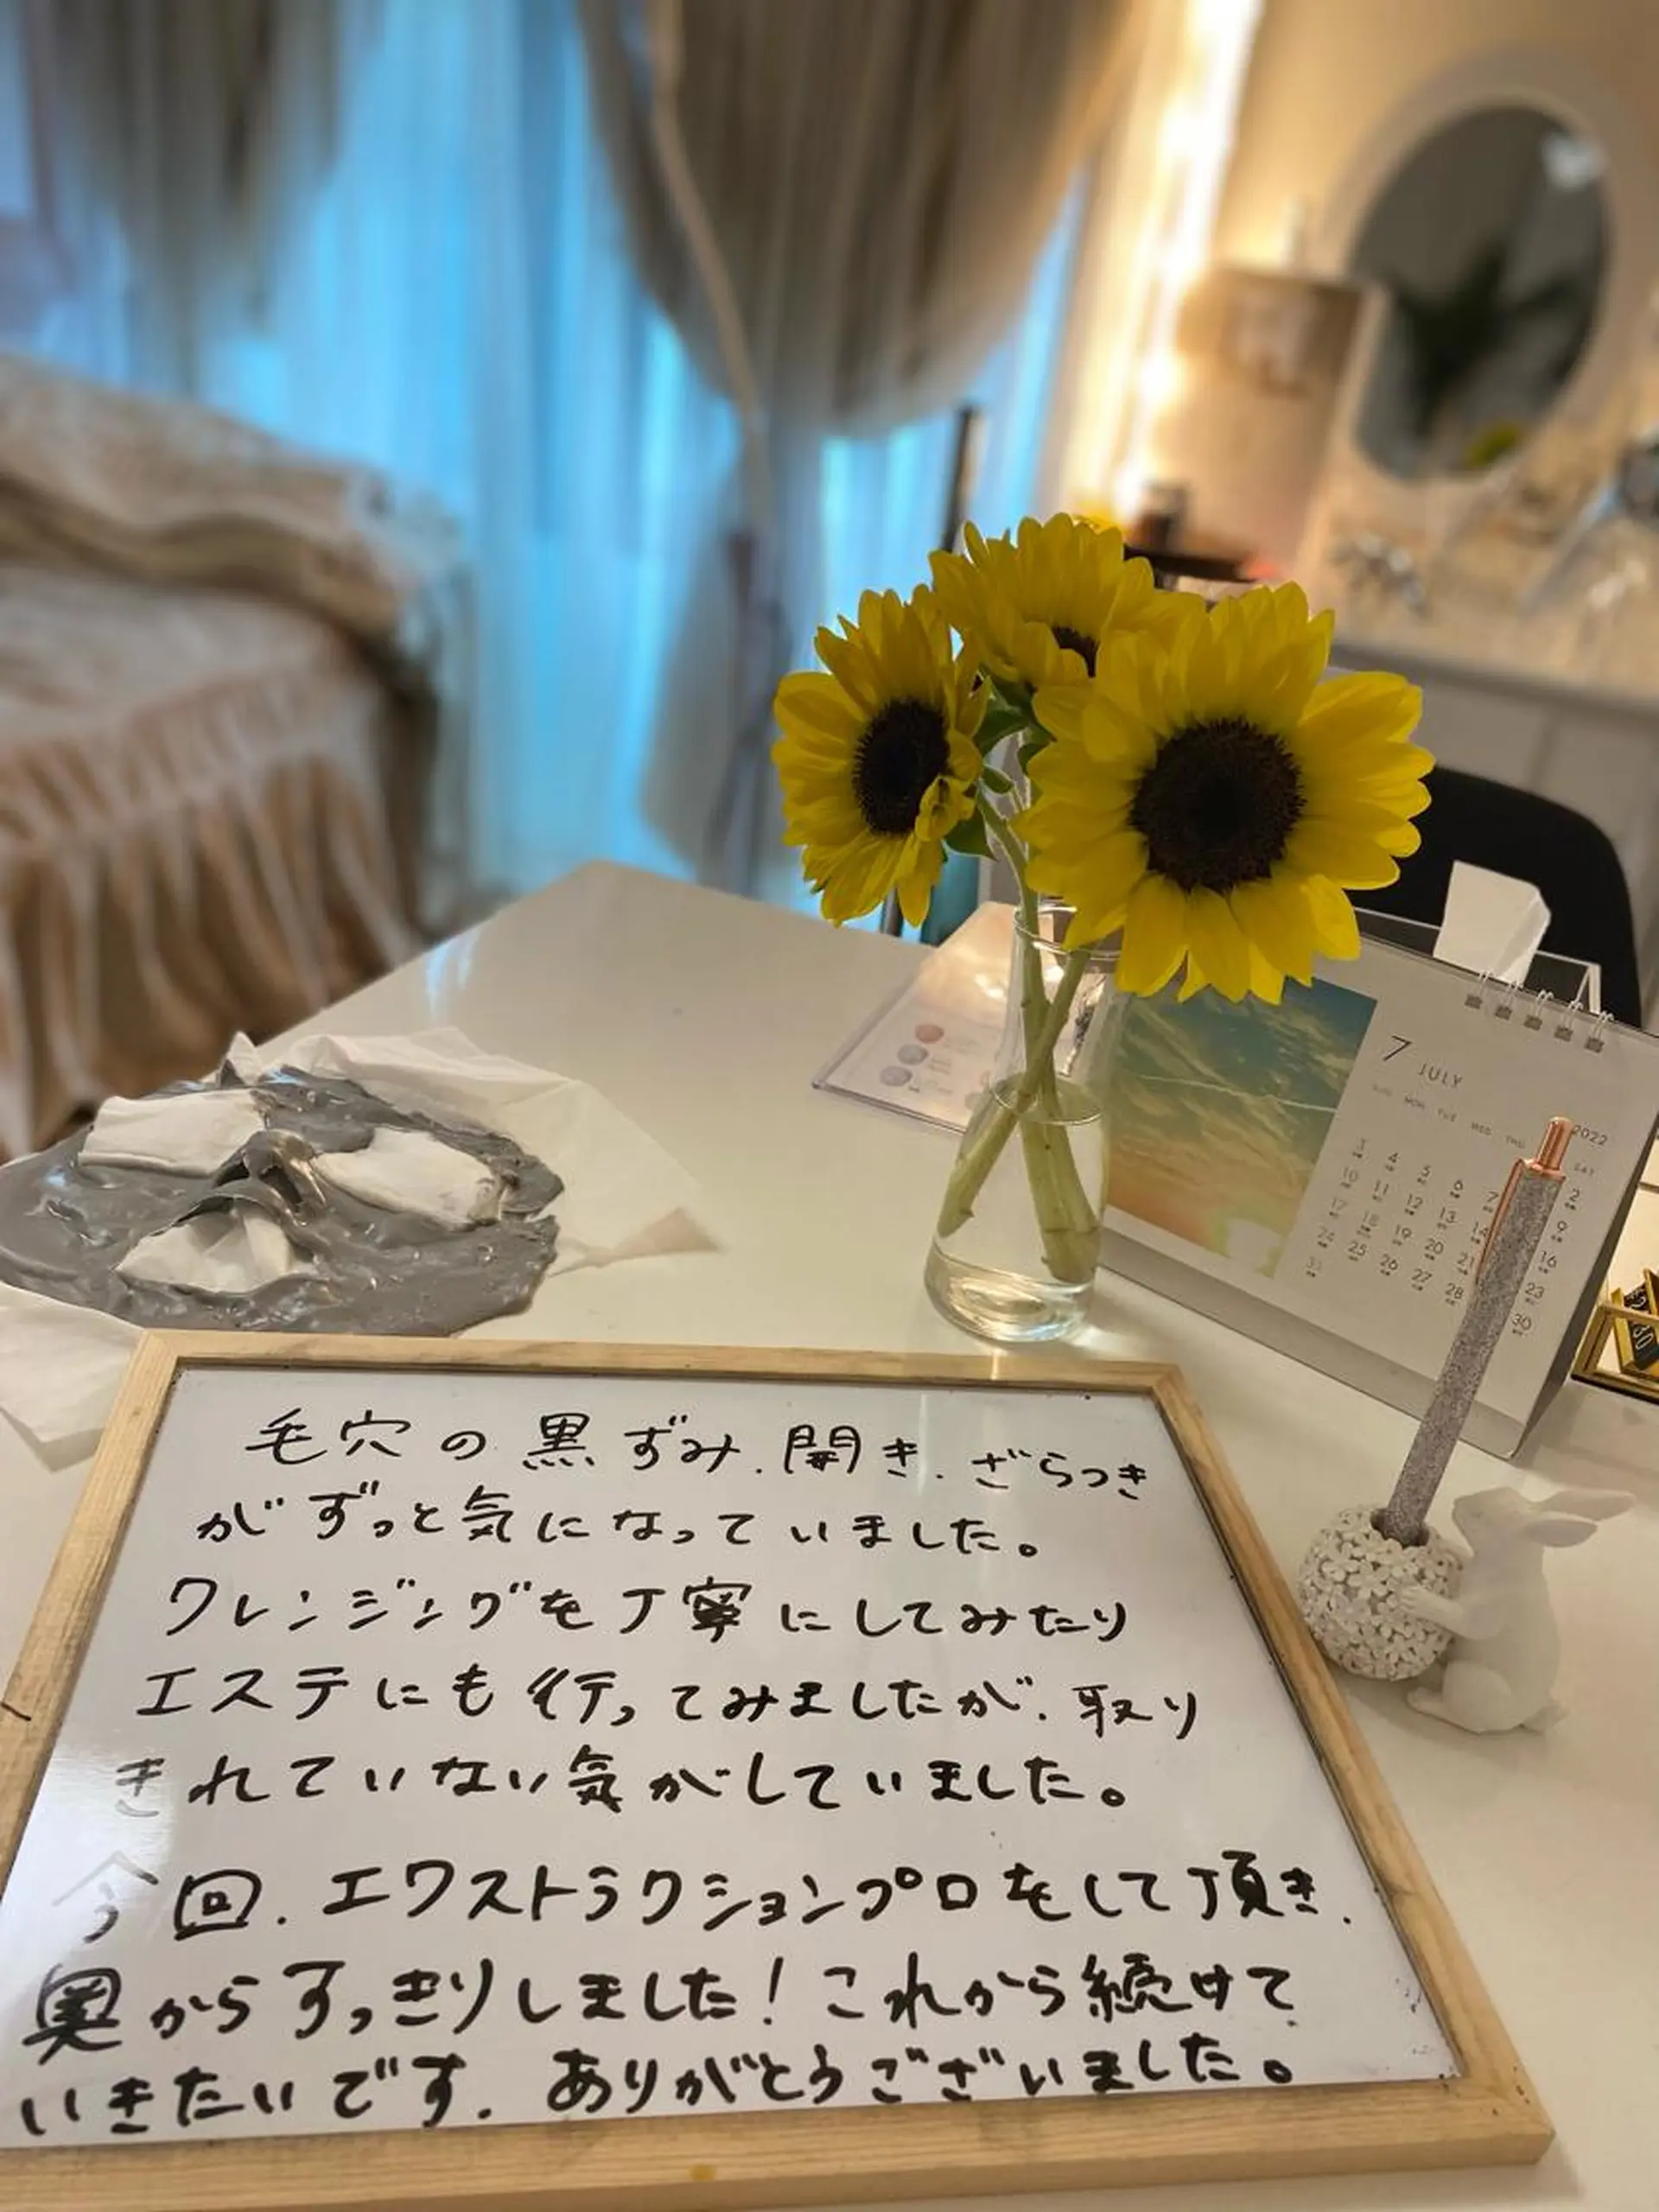 7 JULY
2022
SUN MON TUE WED THU SAT
2
3 4 5 6 7 9
10 11 12 13 14 16
17 18 19 20 21 23
24 25 26 27 28 30
31
毛穴の黒ずみ、開き、ざらつき
がずっと気になっていました。
クレンジングを丁寧にしてみたり
エステにも行ってみましたが、取り
きれていない気がしていました。
今回、エクストラクションプロをして頂き、
奥からすっきりしました!これから続けて
いきたいです。ありがとうございました。